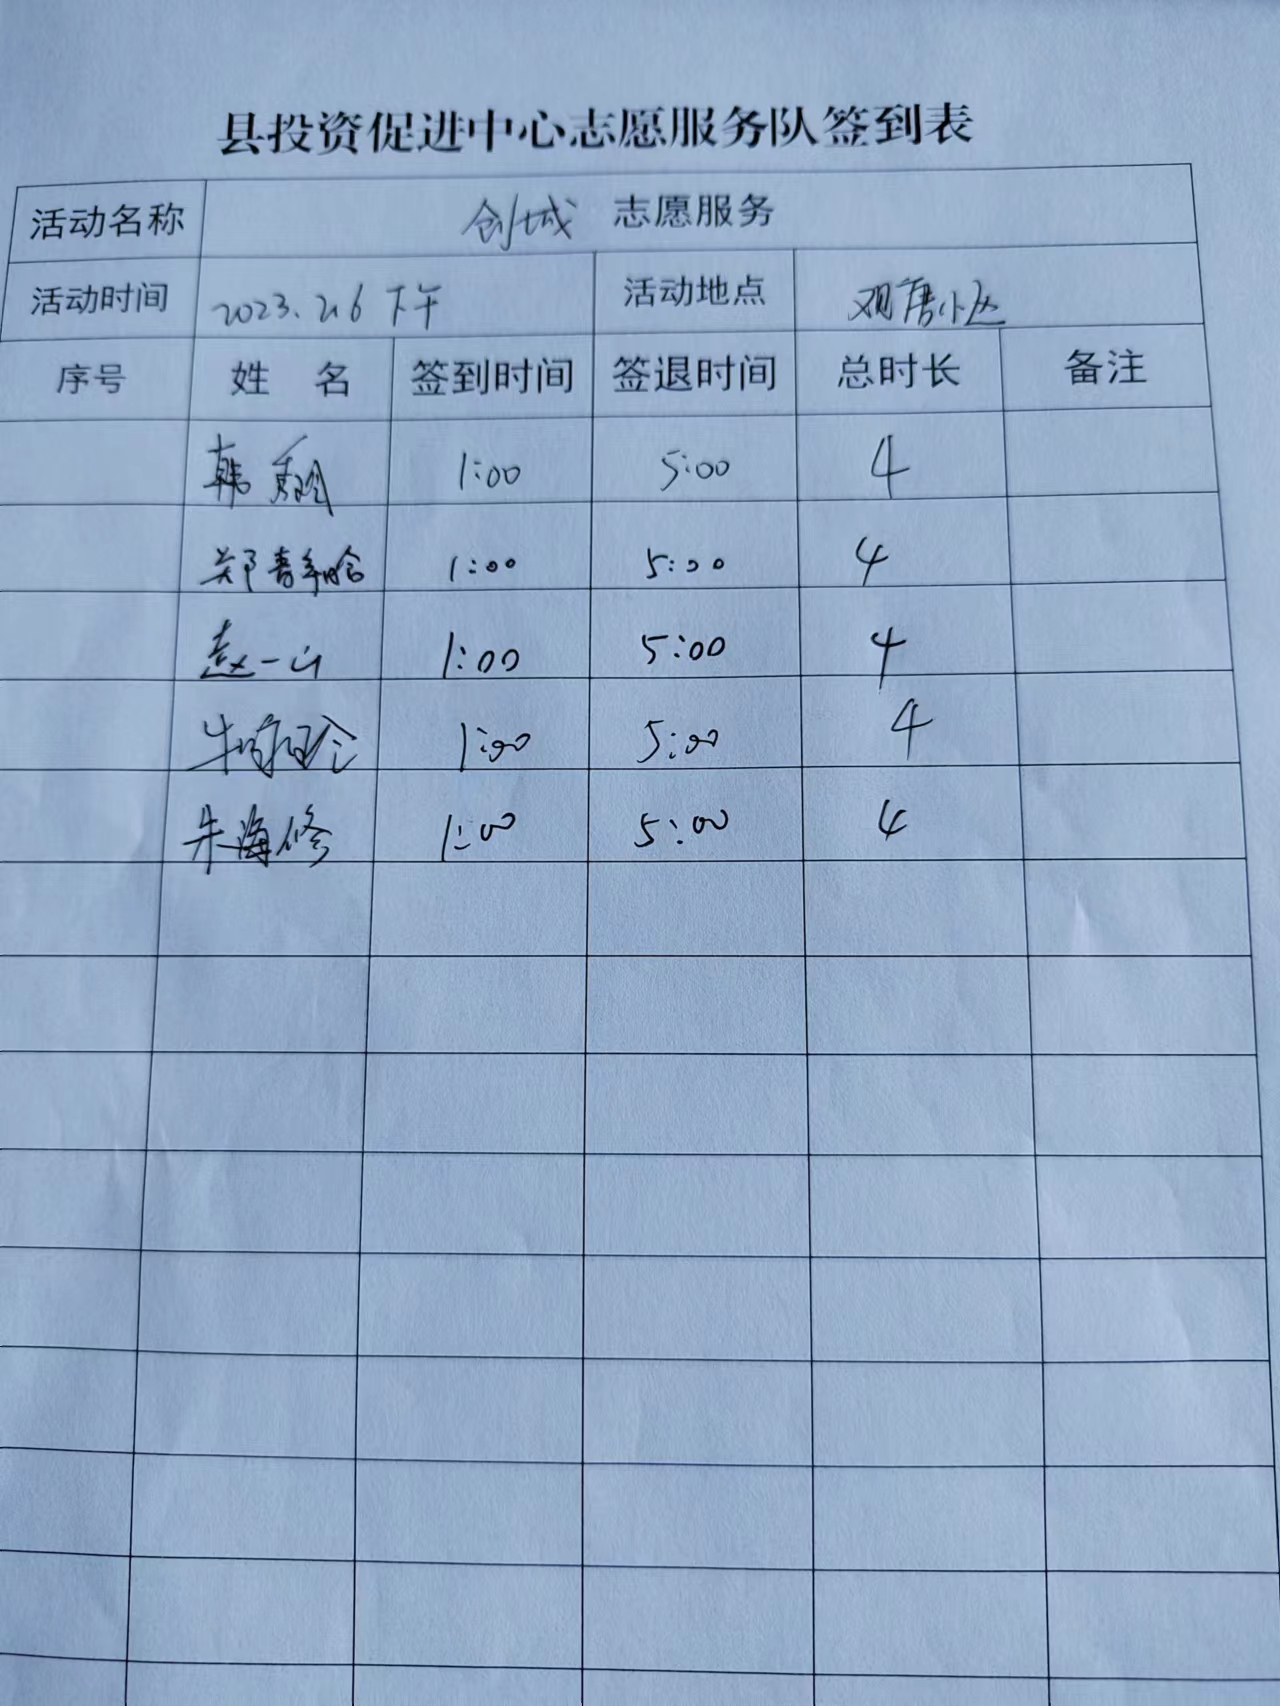 县投资促进中心志愿服务队签到表
活动名称 创城 志愿服务
活动时间 2023.2.6 下午 活动地点 观唐小区
序号 姓 名 签到时间 签退时间 总时长 备注
韩 1:00 5:00 4
郑青 1:00 5:00 4
赵一山 1:00 5:00 4
1:00 5:00 4
朱海修 1:00 5:00 4